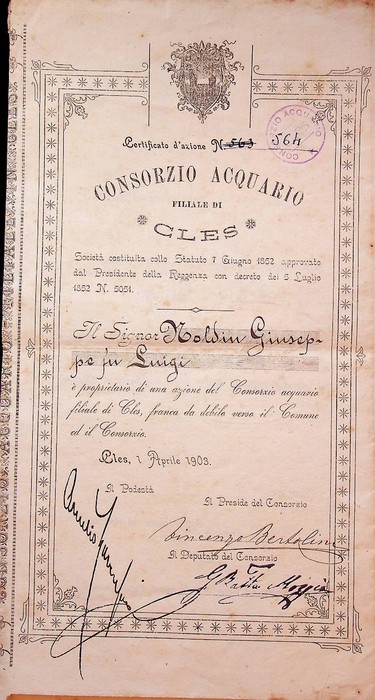 Certificato d'azione N. 563
CONSORZIO ACQUARIO
564
CONSORZIO ACQUARIO
FILIALE DI
CLES
Società costituita collo Statuto 7 Giugno 1852 approvato
dal Presidente della Reggenza con decreto dei 5 Luglio
1852 N. 5051.
Il Signor Noldin Giusep-
pe fu Luigi
è proprietario di una azione del Consorzio acquario
filiale di Cles, franca da debito verso il Comune
ed il Consorzio.
Cles, 1 Aprile 1903.
Il Podestà
Il Preside del Consorzio
Vincenzo Bertolini
Il Deputato del Consorzio
G Batta